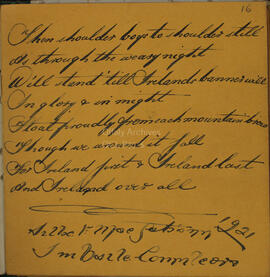 16
Then shoulder boys to shoulder still
As through the weary night
We'll stand 'till Irelands banner will
In glory & in might
Float proudly from each mountain brow
Though we around it fall
For Ireland first & Ireland last
And Ireland over all
1921